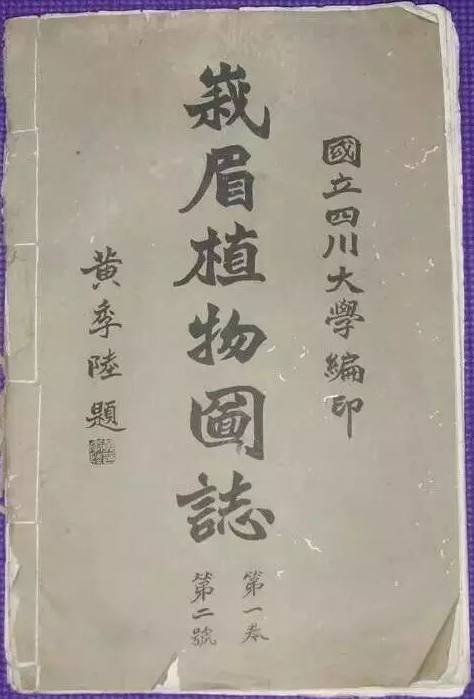 國立四川大學編印
峩眉植物圖誌
第一卷
第二號
黃季陸題